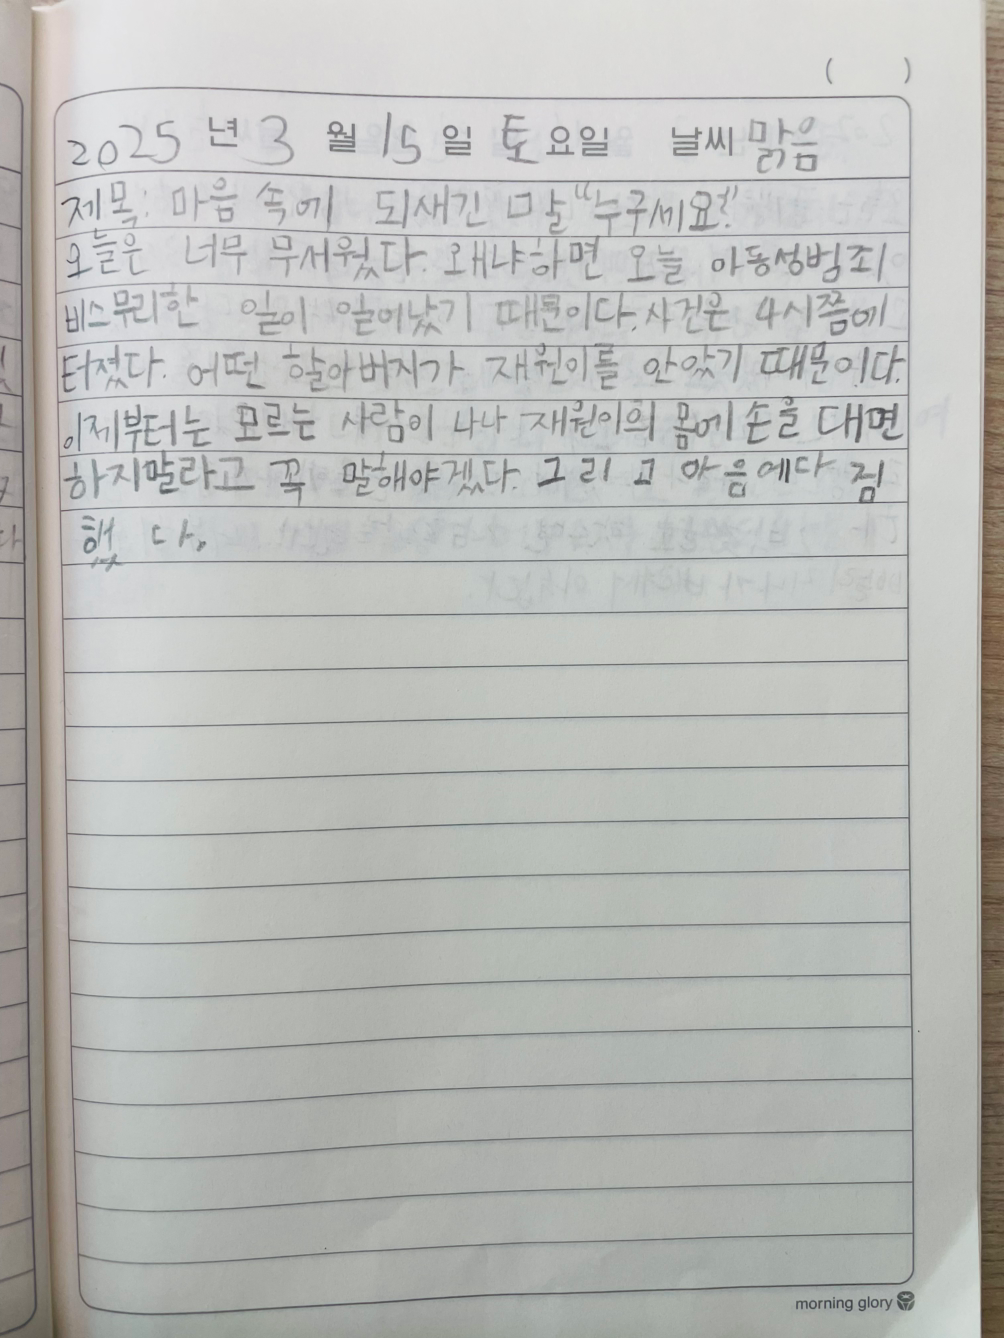 (          )
2025 년 3 월 15 일 토 요일 날씨 맑음
제목: 마음 속에 되새긴 말 "누구세요?"
오늘은 너무 무서웠다. 왜냐하면 오늘 아동성범죄
비스무리한 일이 일어났기 때문이다. 사건은 4시쯤에
터졌다. 어떤 할아버지가 재원이를 안았기 때문이다.
이제부터는 모르는 사람이 나나 재원이의 몸에 손을 대면
하지말라고 꼭 말해야겠다. 그리고 마음에다 짐
했다.
morning glory